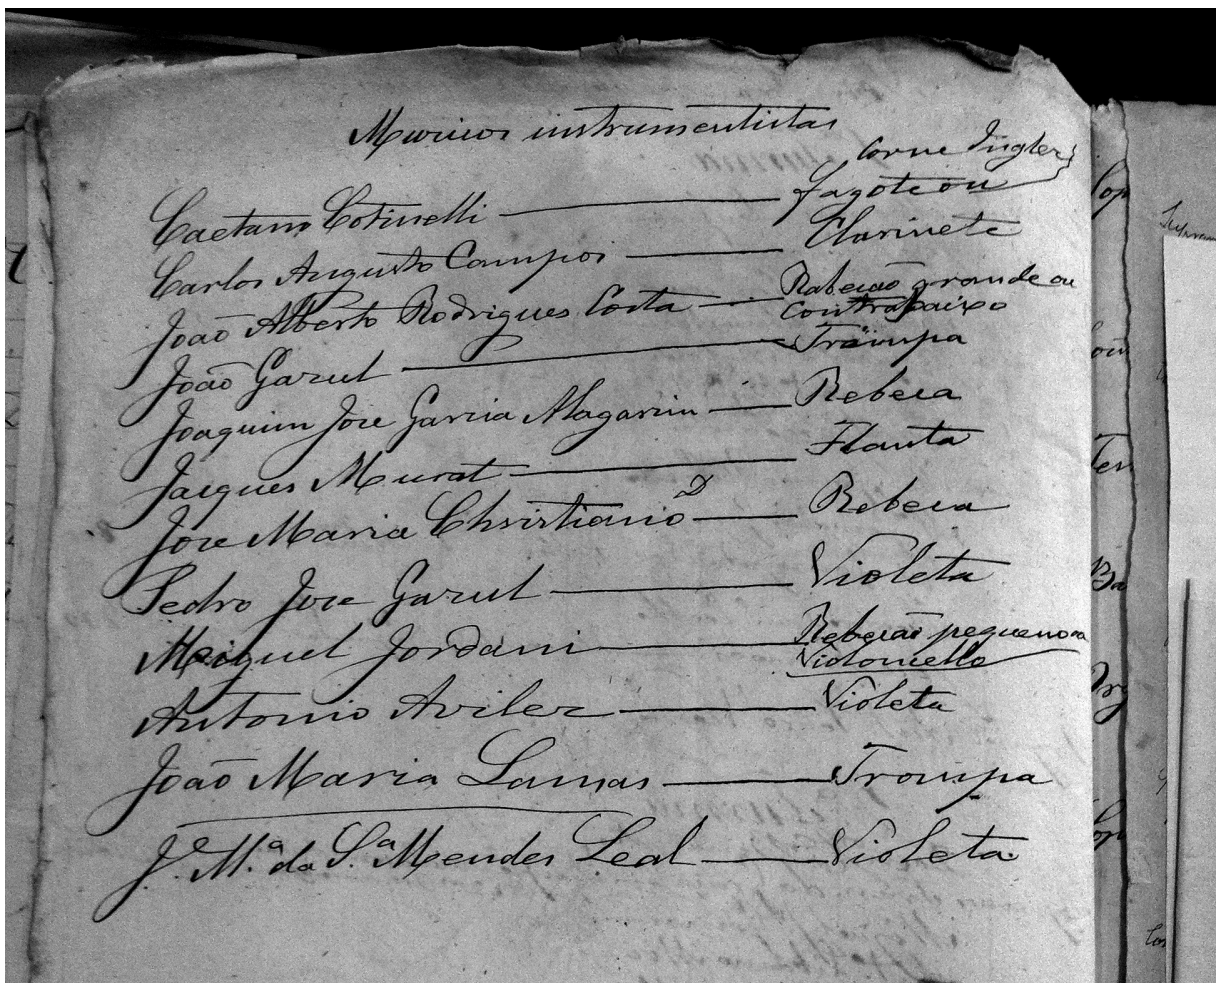 Musicos instrumentistas
Corne Ingles
Caetano Cotinelli — fagote ou
Carlos Augusto Campos — Clarinete
João Alberto Rodrigues Costa — Rabecão grande ou
Contrabaixo
João Gazul — Trompa
Joaquim Jose Garcia Alagarim — Rebeca
Jacques Murat — Flauta
Jose Maria Christiano D — Rebeca
Pedro Jose Gazul — Violeta
Miguel Jordani — Rebecão pequeno ou
Violoncello
Antonio Aviler — Violeta
João Maria Lamas — Trompa
J.e M.a da S.a Mendes Leal — Violeta